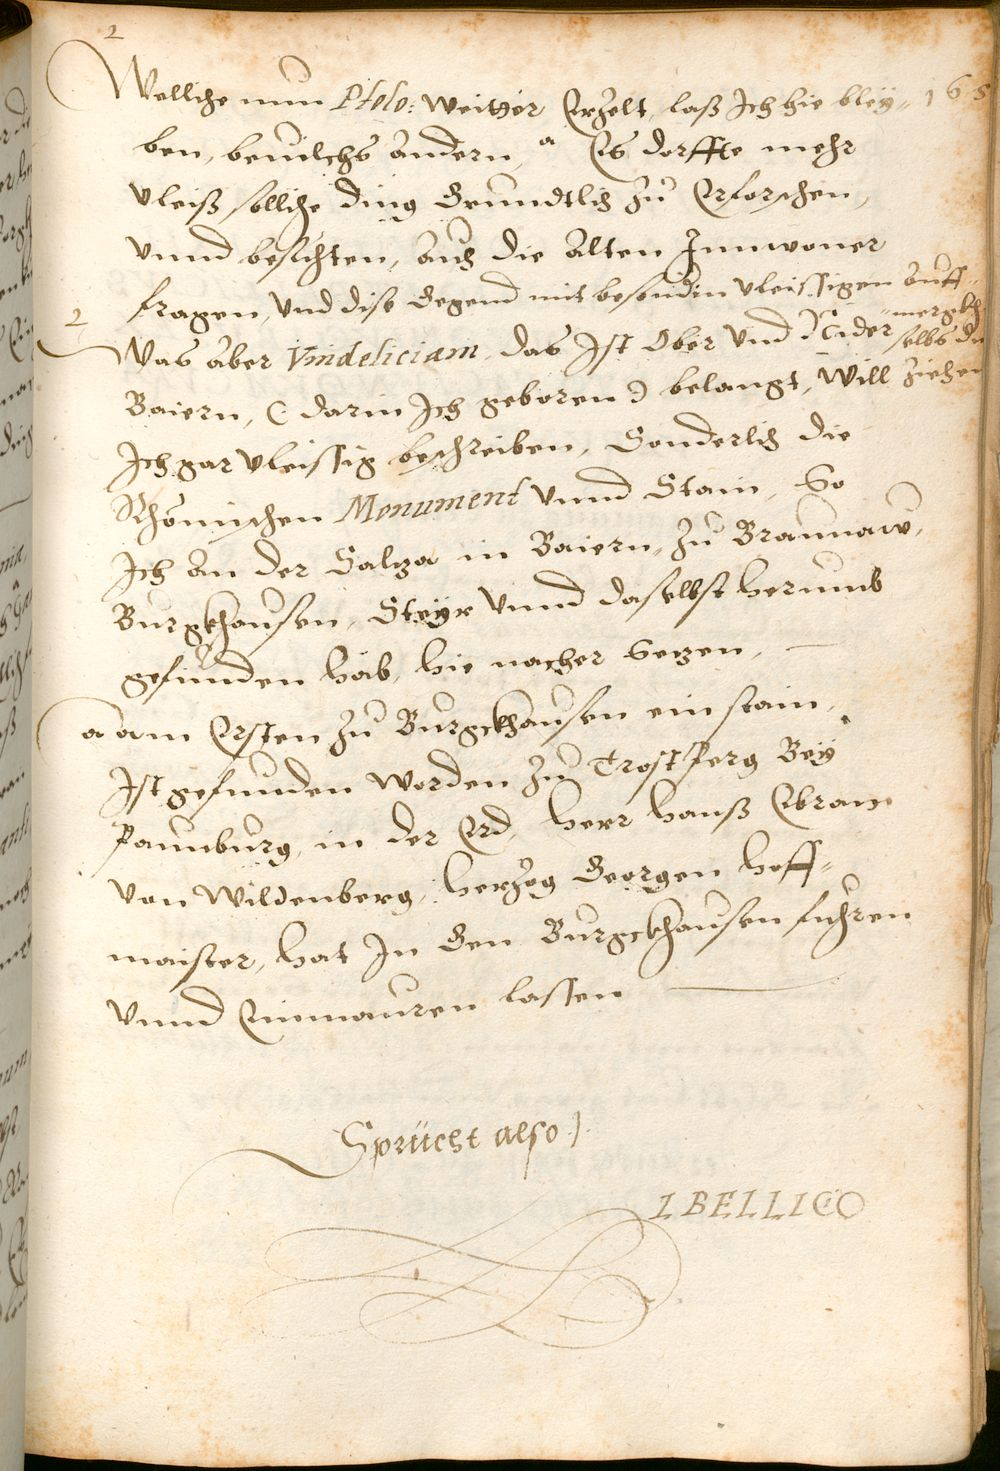 2
Welliche nun Ptolo: weitter Erzelt, laß Ich hie bley- 165
ben, beuilchs andern, a Es dorffte mehr
vleiß solliche ding Grundtlich zu Erforschen,
vnnd besichten, auch die alten Innwoner
fragen, vnd dise Gegend mit besondrn vleissigen auff-
-mergkh
2 Was aber Vindeliciam, das Ist Ober vnd Nider selbs
Baiern, (: darin Ich geboren :) belangt, Will ziehen
Ich gar vleissig beschreiben, Sonderlich die
Rhömischen Monument vnnd Stain, So
Ich an der Saltza in Baiern, zu Braunaw,
Burgkhausen, Steyr vnnd daselbst herumb
gefunden hab, hie nacher Setzen,
a am Ersten zu Burgckhausen ein stain,
Ist gefunden worden zu Trostperg Bey
Paumburg, in der Erd, herr hannß Ebran
von Wildenberg, hertzog Georgen hoff-
maister, hat In Gen Burgckhausen fuehren
vnnd Einmauren lassen
Sprücht also /.
I BELLICO